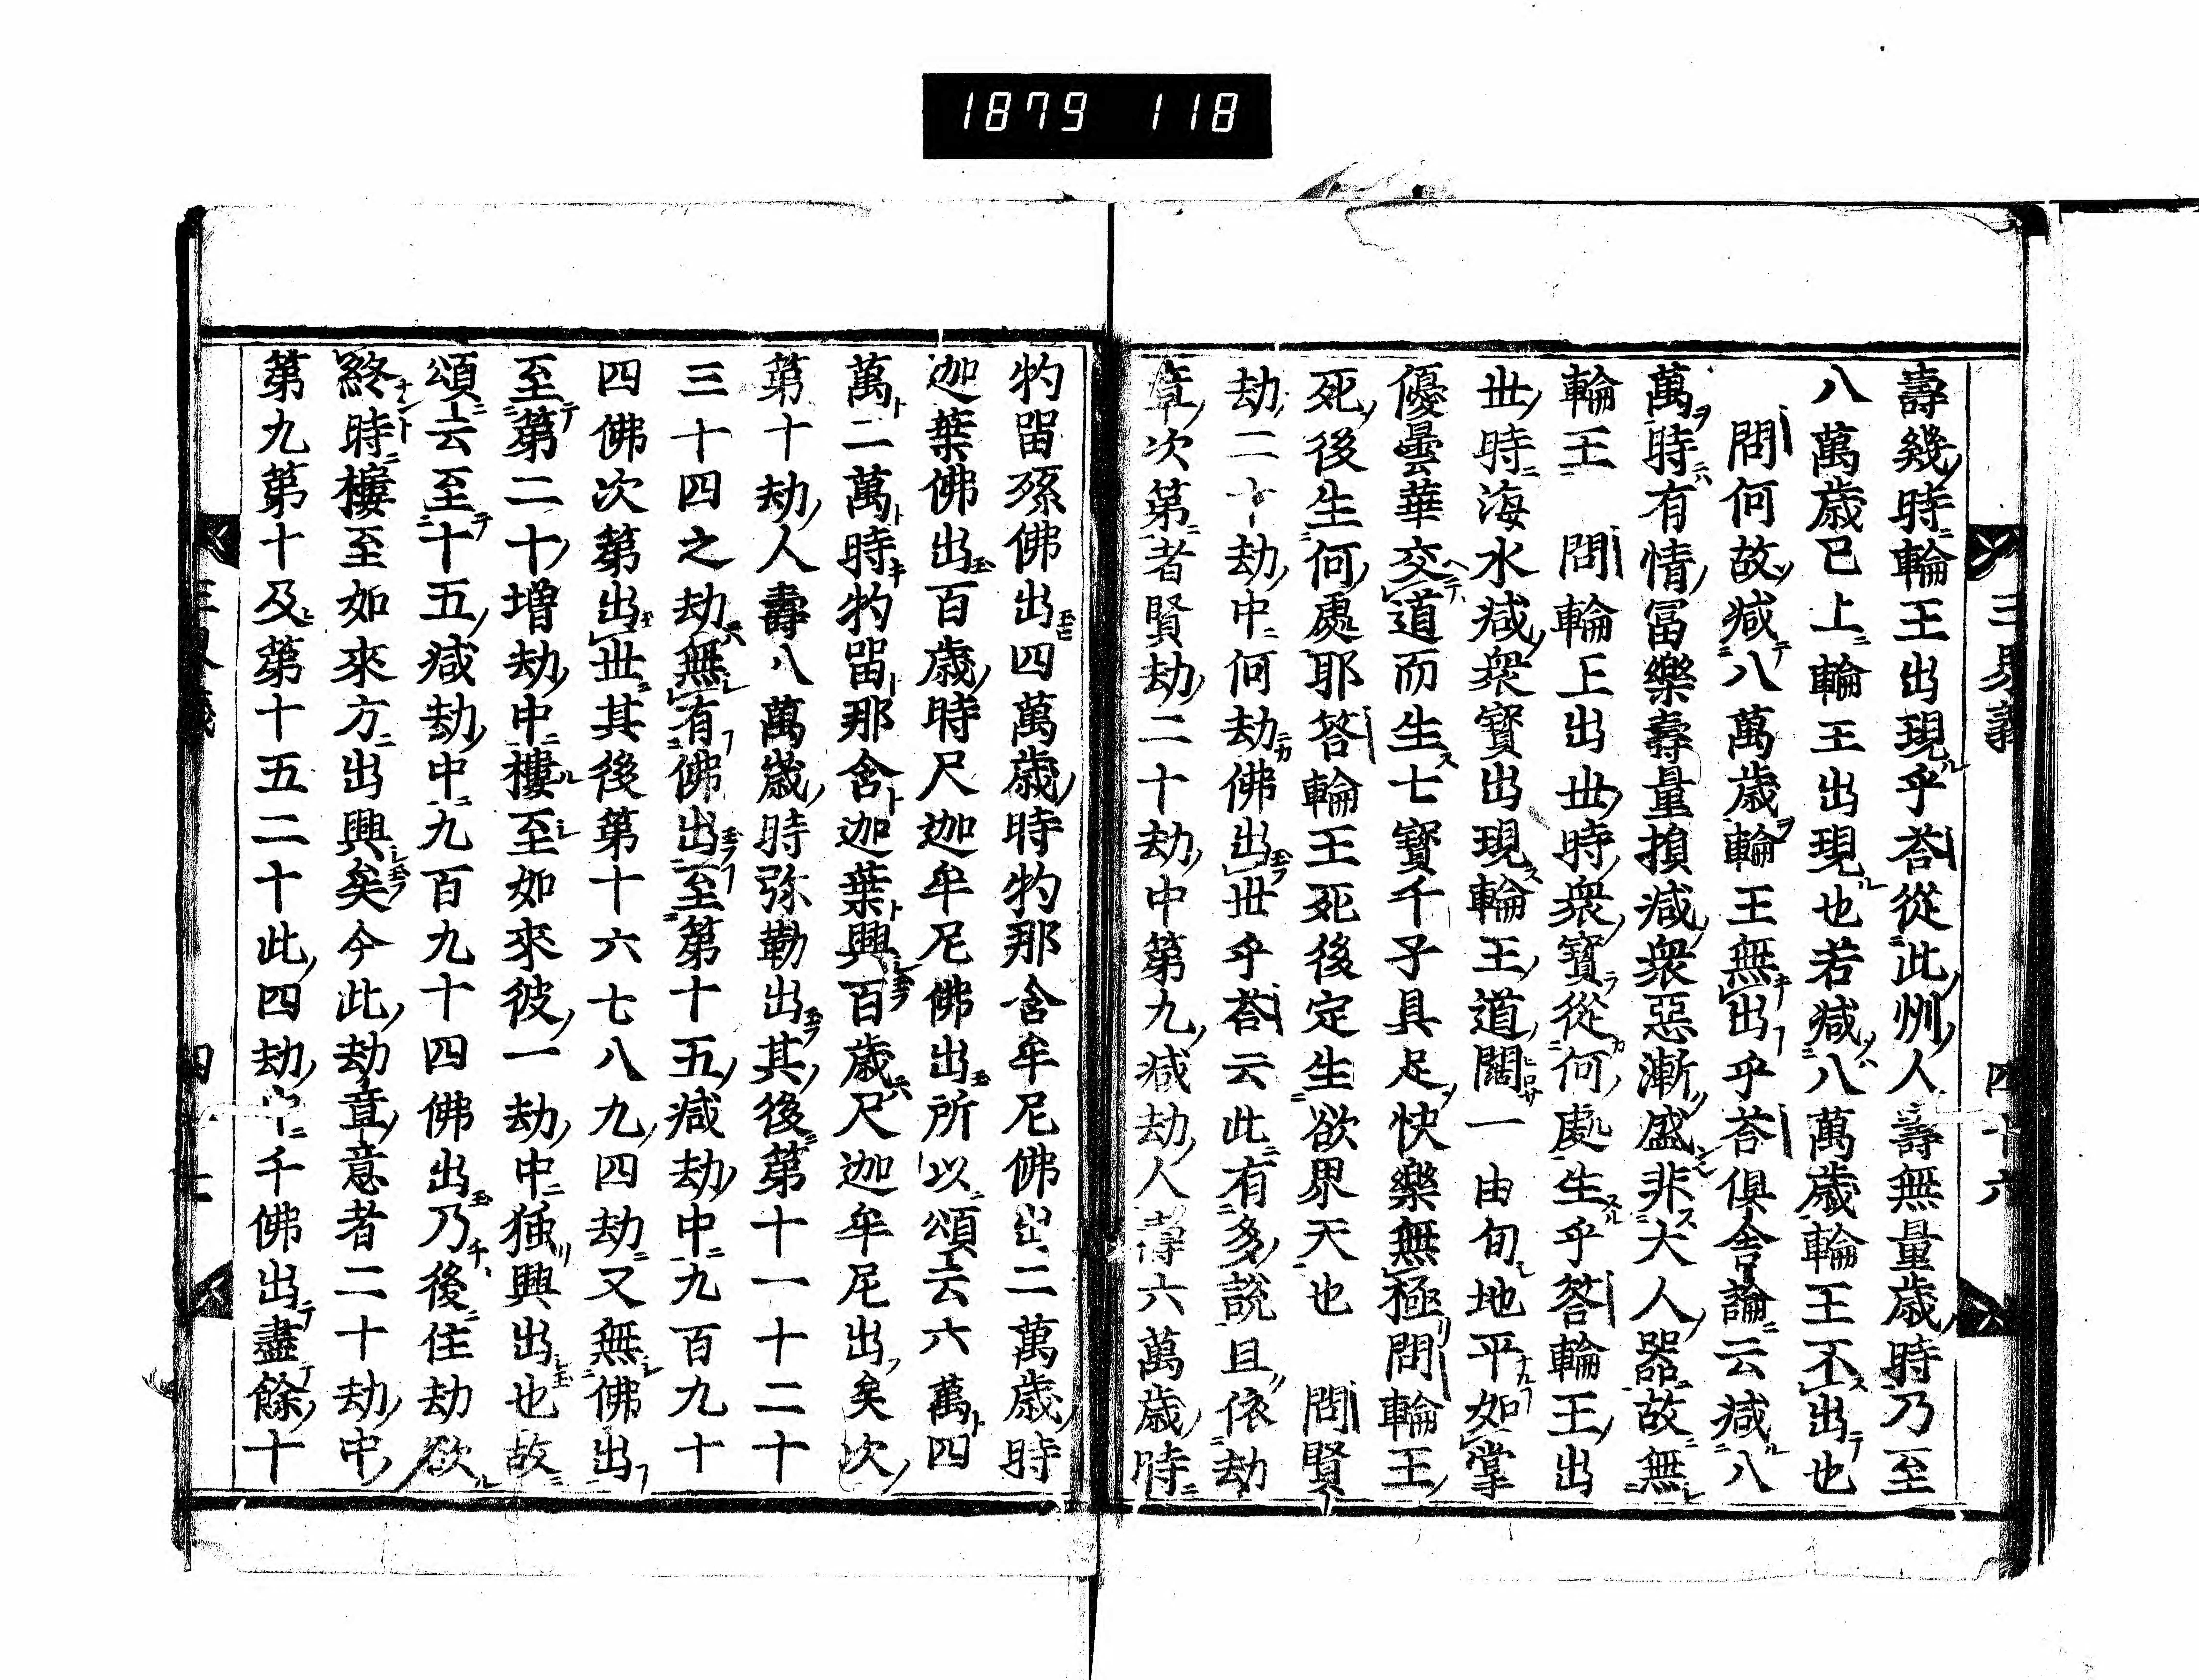 1879 118
三界義 四十六
壽幾時輪王出現乎荅從此州人壽無量歳時乃至
八萬歳已上輪王出現也若减八萬歳輪王不出也
問何故减八萬歳輪王無出乎荅俱舍論云减八
萬時有情冨樂壽量損减衆惡漸盛非大人器故無
輪王 問輪王出世時衆寶從何處生乎答輪王出
世時海水减衆寳出現輪王道闊一由旬地平如掌
優曇華交道而生七寳千子具足快樂無極問輪王
死後生何處耶答輪王死後定生欲界天也 問賢
劫二十劫中何劫佛出世乎荅云此有多説且依劫
章次第者賢劫二十劫中第九减劫人壽六萬歳時
牞留孫佛出四萬歳時牞那含牟尼佛出二萬歳時
迦葉佛出百歳時尺迦牟尼佛出所以頌云六萬四
萬二萬時牞留那舍迦葉興百歳尺迦牟尼出矣次
第十劫人壽八萬歳時弥勒出其後第十一十二十
三十四之劫無有佛出至第十五减劫中九百九十
四佛次第出世其後第十六七八九四劫又無佛出
至第二十増劫中樓至如來彼一劫中独興出也故
頌云至十五减劫中九百九十四佛出乃後住劫欲
終時樓至如來方出興矣今此劫章意者二十劫中
第九第十及第十五二十此四劫中千佛出盡餘十